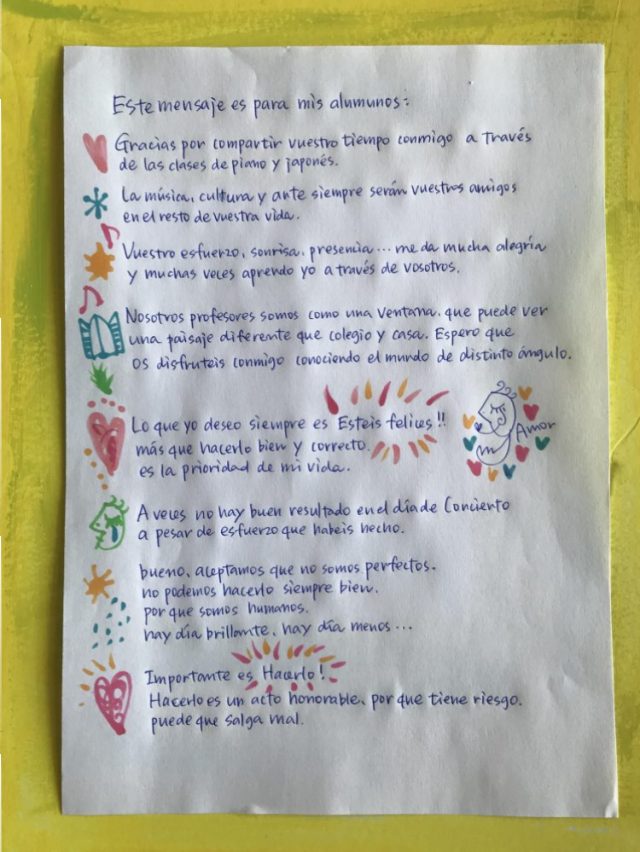 Este mensaje es para mis alumunos:
Gracias por compartir vuestro tiempo conmigo a través
de las clases de piano y japonés.
La música, cultura y arte siempre serán vuestros amigos
en el resto de vuestra vida.
Vuestro esfuerzo, sonrisa, presencia... me da mucha alegría
y muchas veces aprendo yo a través de vosotros.
Nosotros profesores somos como una ventana, que puede ver
una paisaje diferente que colegio y casa. Espero que
os disfruteis conmigo conociendo el mundo de distinto ángulo.
Lo que yo deseo siempre es Esteis felices!!
más que hacerlo bien y correcto.
es la prioridad de mi vida.
Amor
A veces no hay buen resultado en el día de Concierto
a pesar de esfuerzo que habeis hecho.
bueno, aceptamos que no somos perfectos.
no podemos hacerlo siempre bien.
por que somos humanos.
hay día brillante, hay día menos...
Importante es Hacerlo!
Hacerlo es un acto honorable, por que tiene riesgo.
puede que salga mal.